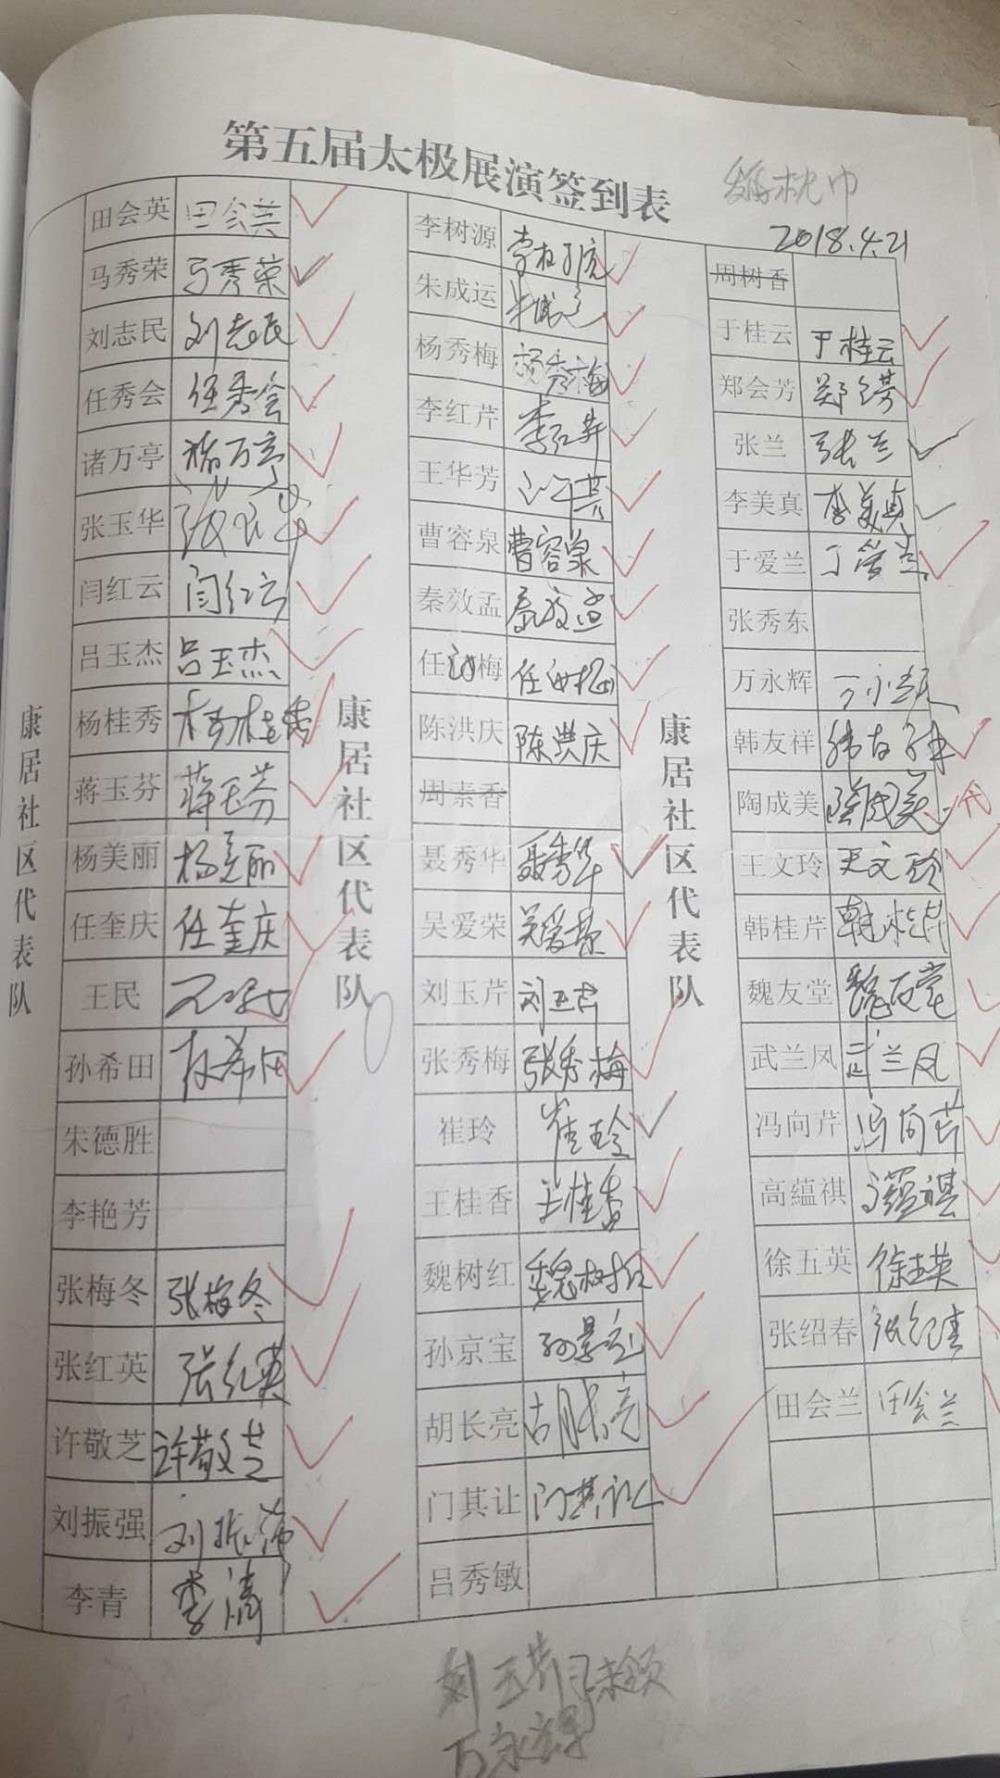 第五届太极展演签到表
枕巾
2018.4.21
康居社区代表队
田会英 田会英
马秀荣 马秀荣
刘志民 刘志民
任秀会 任秀会
诸万亭 褚万亭
张玉华 张玉华
闫红云 闫红云
吕玉杰 吕玉杰
杨桂秀 杨桂秀
蒋玉芬 蒋玉芬
杨美丽 杨美丽
任奎庆 任奎庆
王民 王民
孙希田 孙希田
朱德胜
李艳芳
张梅冬 张梅冬
张红英 张红英
许敬芝 许敬芝
刘振强 刘振强
李青 李清
康居社区代表队
李树源 李树源
朱成运 朱成运
杨秀梅 杨秀梅
李红芹 李红芹
王华芳 王华芳
曹容泉 曹容泉
秦效孟 秦效孟
任汝梅 任汝梅
陈洪庆 陈洪庆
周素香
聂秀华 聂秀华
吴爱荣 吴爱荣
刘玉芹 刘玉芹
张秀梅 张秀梅
崔玲 崔玲
王桂香 王桂香
魏树红 魏树红
孙京宝 孙景宝
胡长亮 胡长亮
门其让 门其让
吕秀敏
康居社区代表队
周树香
于桂云 于桂云
郑会芳 郑会芳
张兰 张兰
李美真 李美真
于爱兰 于爱兰
张秀东
万永辉 万永辉
韩友祥 韩友祥
陶成美 陶成美 代
王文玲 王文玲
韩桂芹 韩桂芹
魏友堂 魏友堂
武兰凤 武兰凤
冯向芹 冯向芹
高蕴祺 高蕴祺
徐五英 徐五英
张绍春 张绍春
田会兰 田会兰
刘玉芹 未领
万永辉